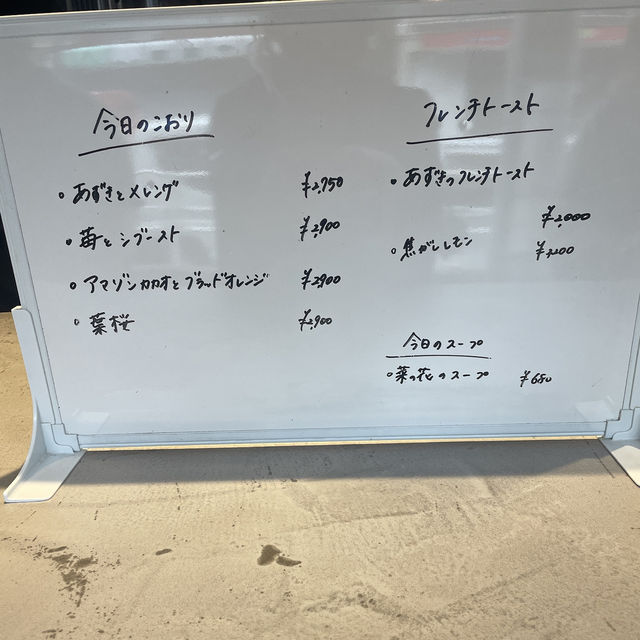 今日のこおり
・あずきとメレンゲ ¥2,750
・苺とシブースト ¥2,900
・アマゾンカカオとブラッドオレンジ ¥2,900
・葉桜 ¥2,900
フレンチトースト
・あずきのフレンチトースト
¥2,000
・焦がしレモン ¥2,200
今日のスープ
・菜の花のスープ ¥650